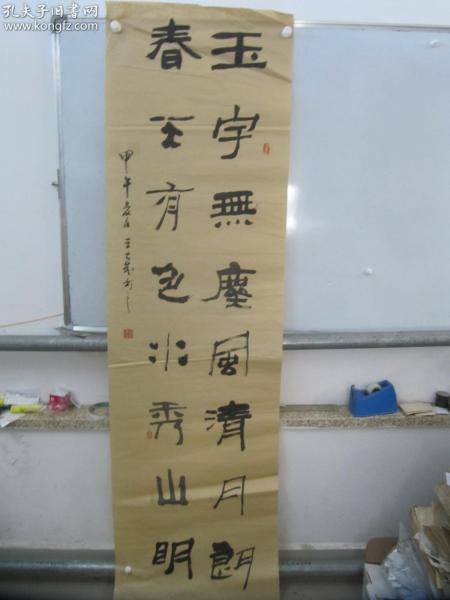 孔夫子旧书网
www.kongfz.com
玉宇無塵風清月朗
春天有色水秀山明
甲午